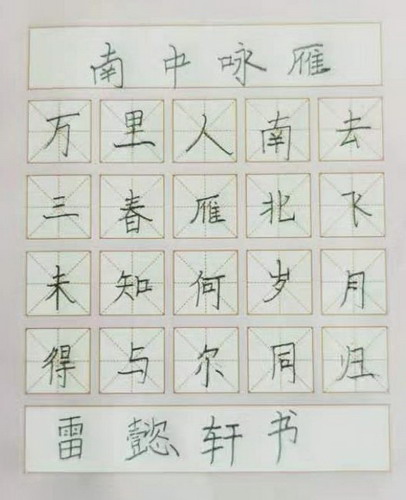 南中咏雁
万里人南去
三春雁北飞
未知何岁月
得与尔同归
雷懿轩书